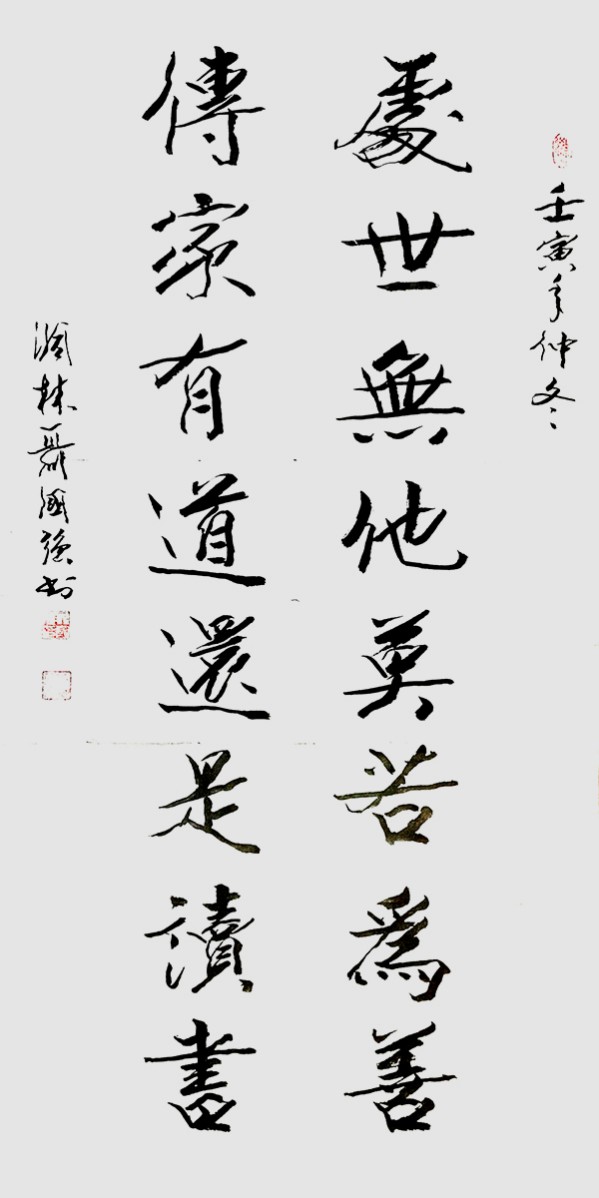 壬寅年仲冬
處世無他莫若爲善
傳家有道還是讀書
林聶國强书